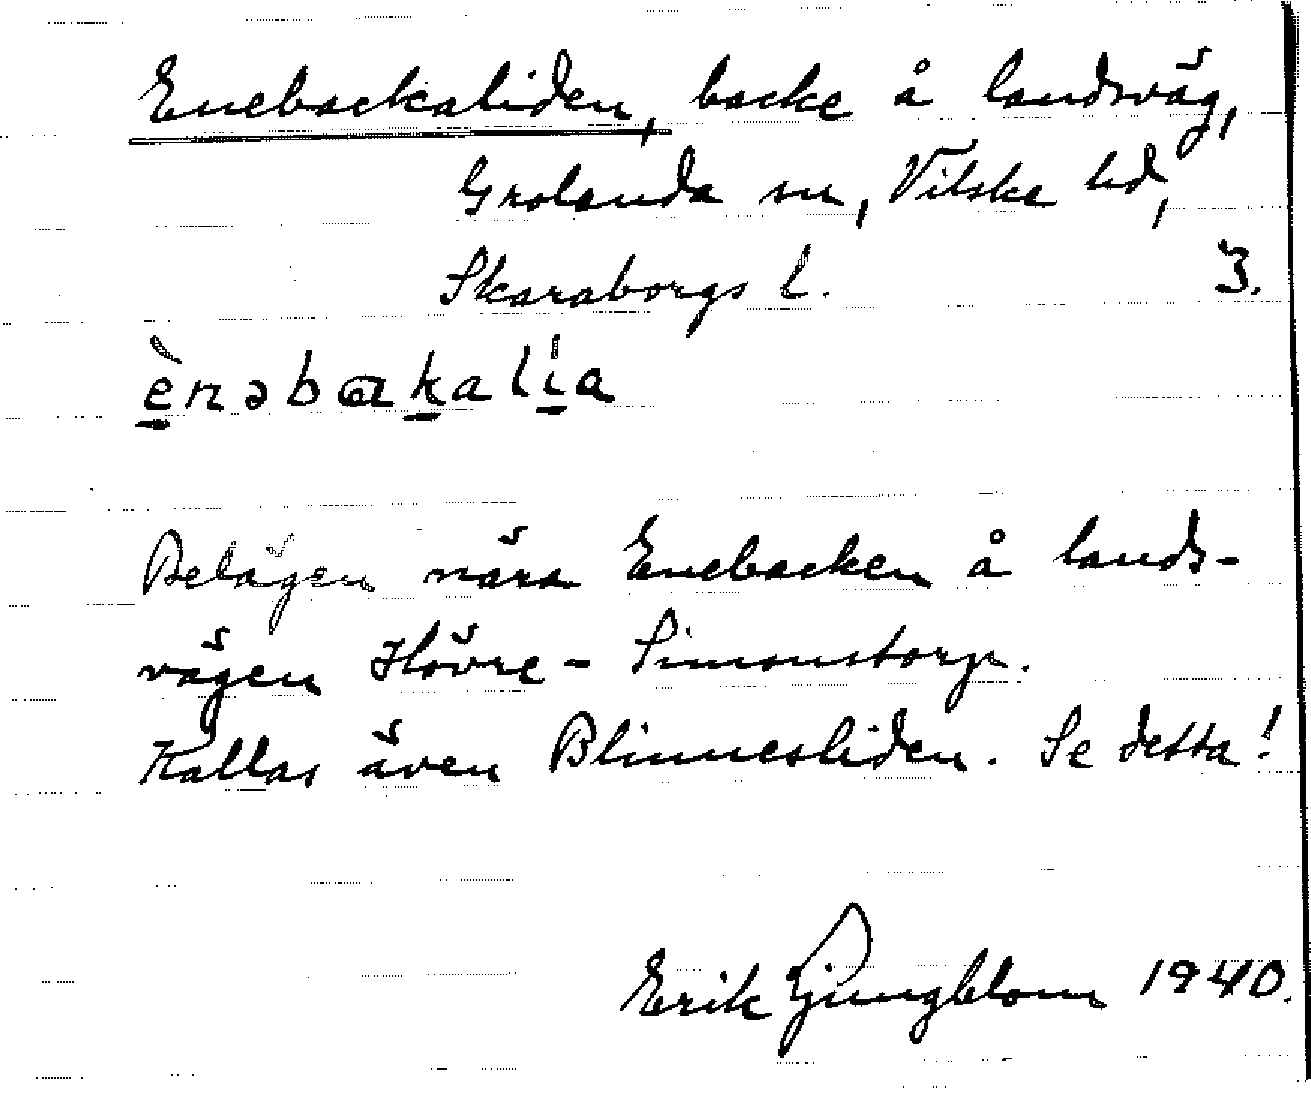 Enebackaliden, backe å landsväg,
Grolanda sn, Vilske hd,
Skaraborgs l. 3.
ènəbakalía
Belägen nära Enebacken å lands-
vägen Hövre - Simonstorp.
Kallas även Blinnesliden. Se detta!
Erik Ljungblom 1940.